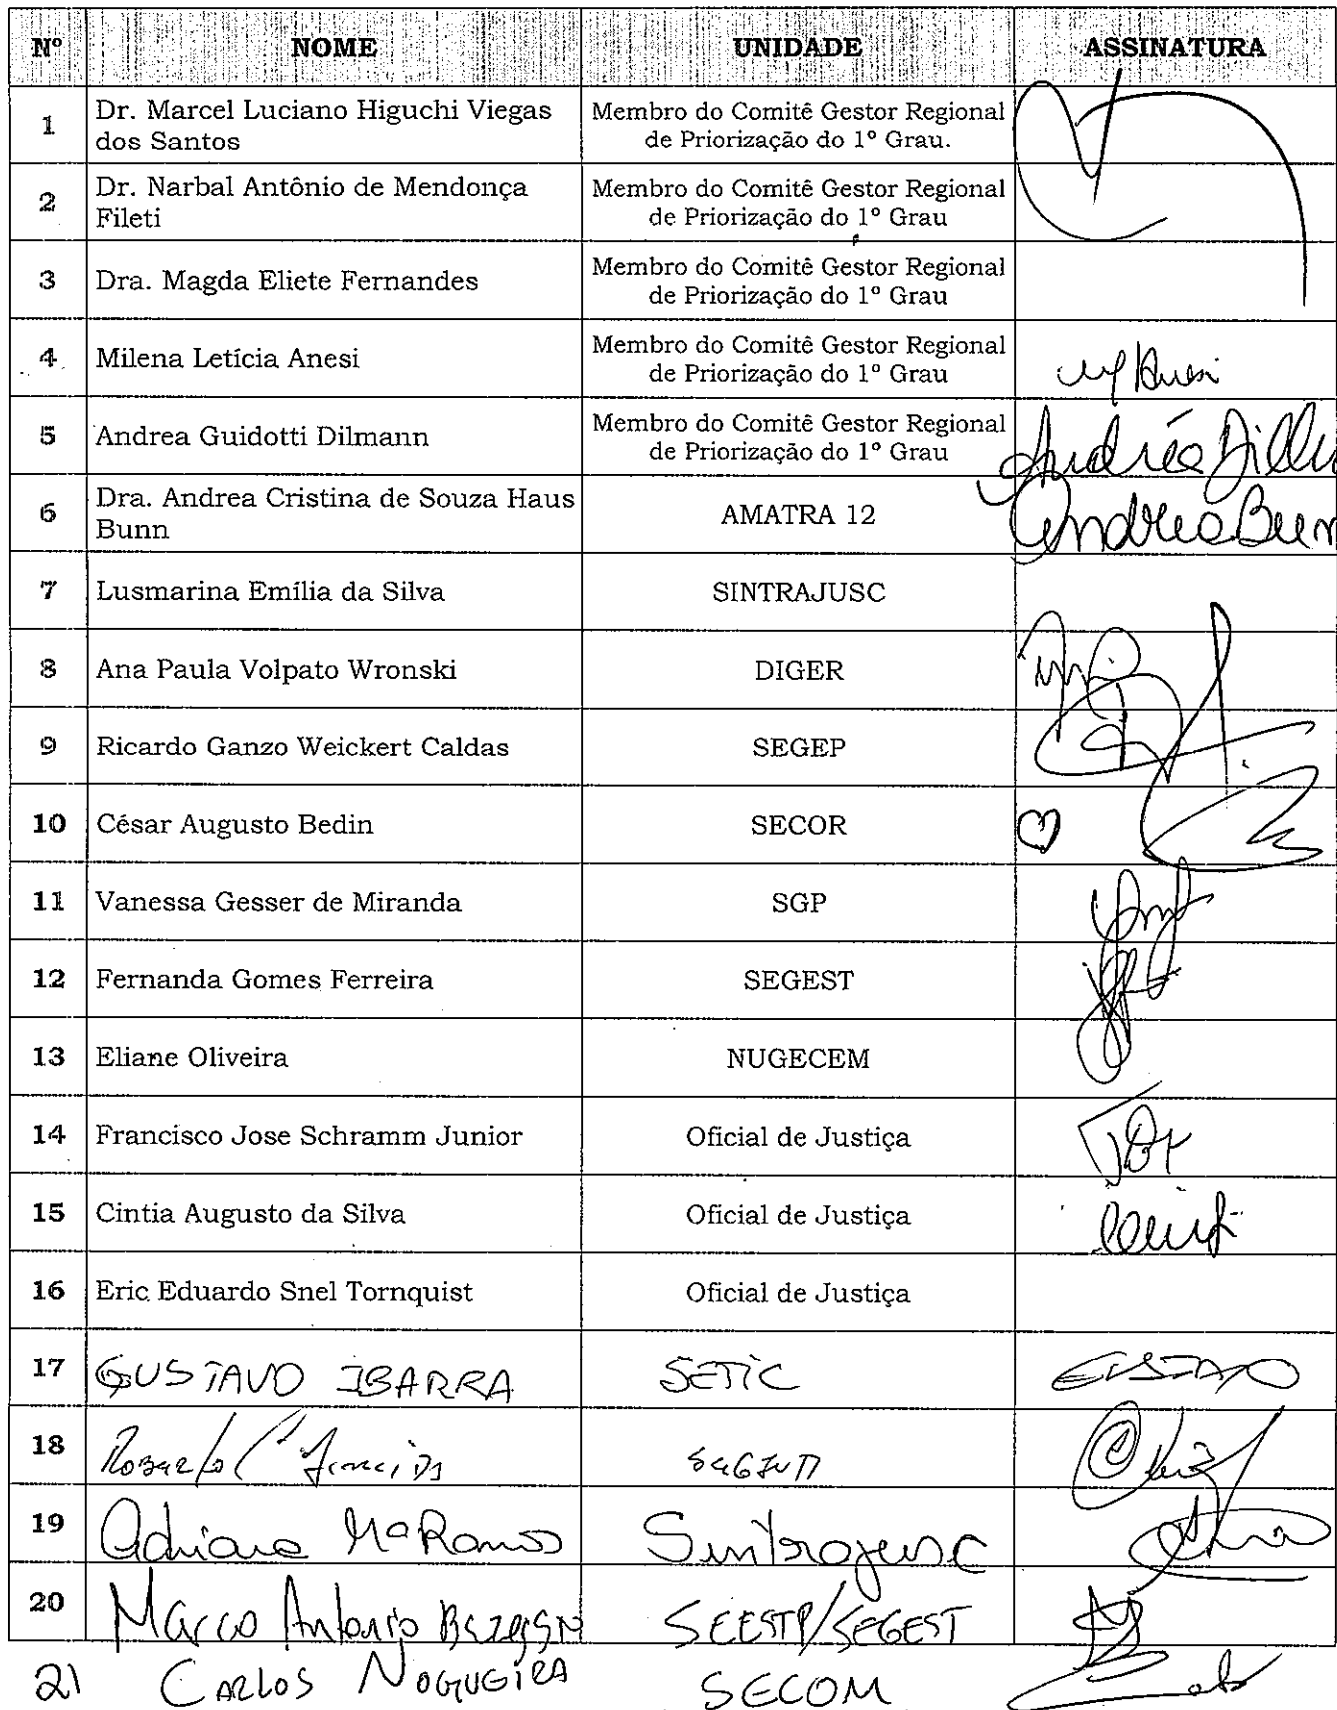 Nº NOME UNIDADE ASSINATURA
1 Dr. Marcel Luciano Higuchi Viegas dos Santos Membro do Comitê Gestor Regional de Priorização do 1º Grau.
2 Dr. Narbal Antônio de Mendonça Fileti Membro do Comitê Gestor Regional de Priorização do 1º Grau
3 Dra. Magda Eliete Fernandes Membro do Comitê Gestor Regional de Priorização do 1º Grau
4 Milena Letícia Anesi Membro do Comitê Gestor Regional de Priorização do 1º Grau
5 Andrea Guidotti Dilmann Membro do Comitê Gestor Regional de Priorização do 1º Grau
6 Dra. Andrea Cristina de Souza Haus Bunn AMATRA 12 Andrea Bun
7 Lusmarina Emília da Silva SINTRAJUSC
8 Ana Paula Volpato Wronski DIGER
9 Ricardo Ganzo Weickert Caldas SEGEP
10 César Augusto Bedin SECOR
11 Vanessa Gesser de Miranda SGP
12 Fernanda Gomes Ferreira SEGEST
13 Eliane Oliveira NUGECEM
14 Francisco Jose Schramm Junior Oficial de Justiça
15 Cintia Augusto da Silva Oficial de Justiça
16 Eric Eduardo Snel Tornquist Oficial de Justiça
17 GUSTAVO IBARRA SETIC GUSTAVO
18
19 Adriana Mª Ramos Sintrajusc
20 Marco Antonio SEESTP/SEGEST
21 CARLOS NOGUEIRA SECOM